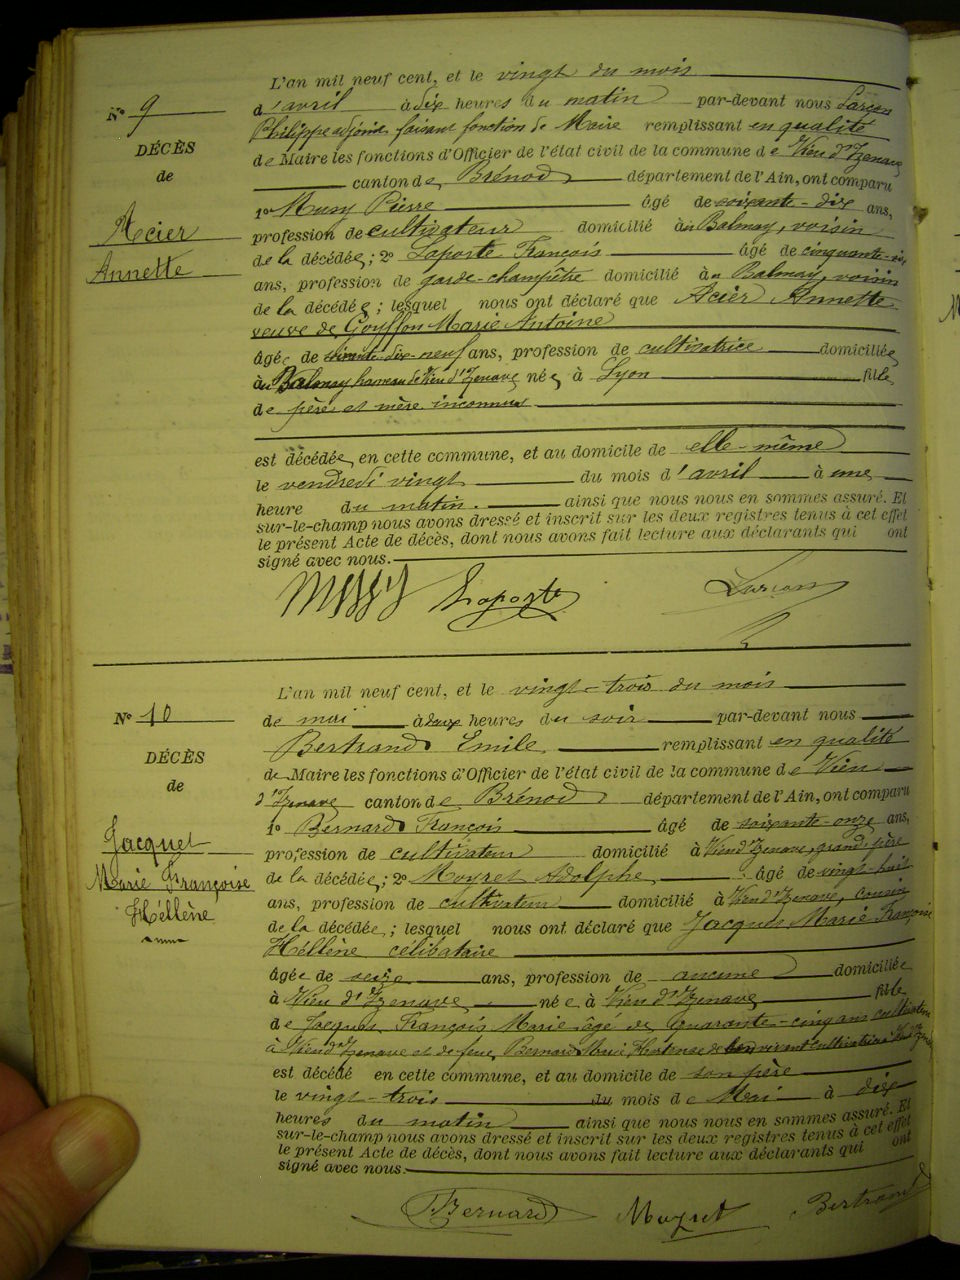 L'an mil neuf cent, et le vingt du mois
N° 9
d'avril à dix heures du matin par-devant nous Larçon
Philippe adjoint faisant fonction de Maire remplissant en qualité
DÉCÈS
de
de Maire les fonctions d'Officier de l'état civil de la commune de Vieu d'Izenave
canton de Brénod département de l'Ain, ont comparu
1° Mussy Pierre âgé de soixante-dix ans,
Acier
Annette
profession de cultivateur domicilié à Balmay, voisin
de la décédée; 2° Laporte François âgé de cinquante-six
ans, profession de garde-champêtre domicilié à Balmay, voisin
de la décédée; lesquel nous ont déclaré que Acier Annette
veuve de Goyffon Marie Antoine
âgée de soixante-dix-neuf ans, profession de cultivatrice domiciliée
à Balmay hameau de Vieu d'Izenave née à Lyon fille
de père et mère inconnus
est décédée, en cette commune, et au domicile de elle-même
le vendredi vingt du mois d'avril à une
heure du matin. ainsi que nous nous en sommes assuré. Et
sur-le-champ nous avons dressé et inscrit sur les deux registres tenus à cet effet
le présent Acte de décès, dont nous avons fait lecture aux déclarants qui ont
signé avec nous.
Mussy Laporte Larçon
L'an mil neuf cent, et le vingt-trois du mois
N° 10
de mai à deux heures du soir par-devant nous
Bertrand Emile remplissant en qualité
DÉCÈS
de
de Maire les fonctions d'Officier de l'état civil de la commune de Vieu
d'Izenave canton de Brénod département de l'Ain, ont comparu
1° Bernard François âgé de soixante-onze ans,
Jacquet
Marie Françoise
Héllène
profession de cultivateur domicilié à Vieu d'Izenave, grand-père
de la décédée; 2° Moyret Adolphe âgé de vingt-huit
ans, profession de cultivateur domicilié à Vieu d'Izenave, cousin
de la décédée; lesquel nous ont déclaré que Jacquet Marie Françoise
Héllène célibataire
âgée de seize ans, profession de aucune domiciliée
à Vieu d'Izenave née à Vieu d'Izenave fille
de Jacquet François Marie âgé de quarante-cinq ans cultivateur
à Vieu d'Izenave et de feue Bernard Marie Hortense de son vivant cultivatrice à Vieu d'Izenave
est décédé en cette commune, et au domicile de son père
le vingt-trois du mois de Mai à dix
heures du matin ainsi que nous nous en sommes assuré. Et
sur-le-champ nous avons dressé et inscrit sur les deux registres tenus à cet effet
le présent Acte de décès, dont nous avons fait lecture aux déclarants qui ont
signé avec nous.
Bernard Moyret Bertrand